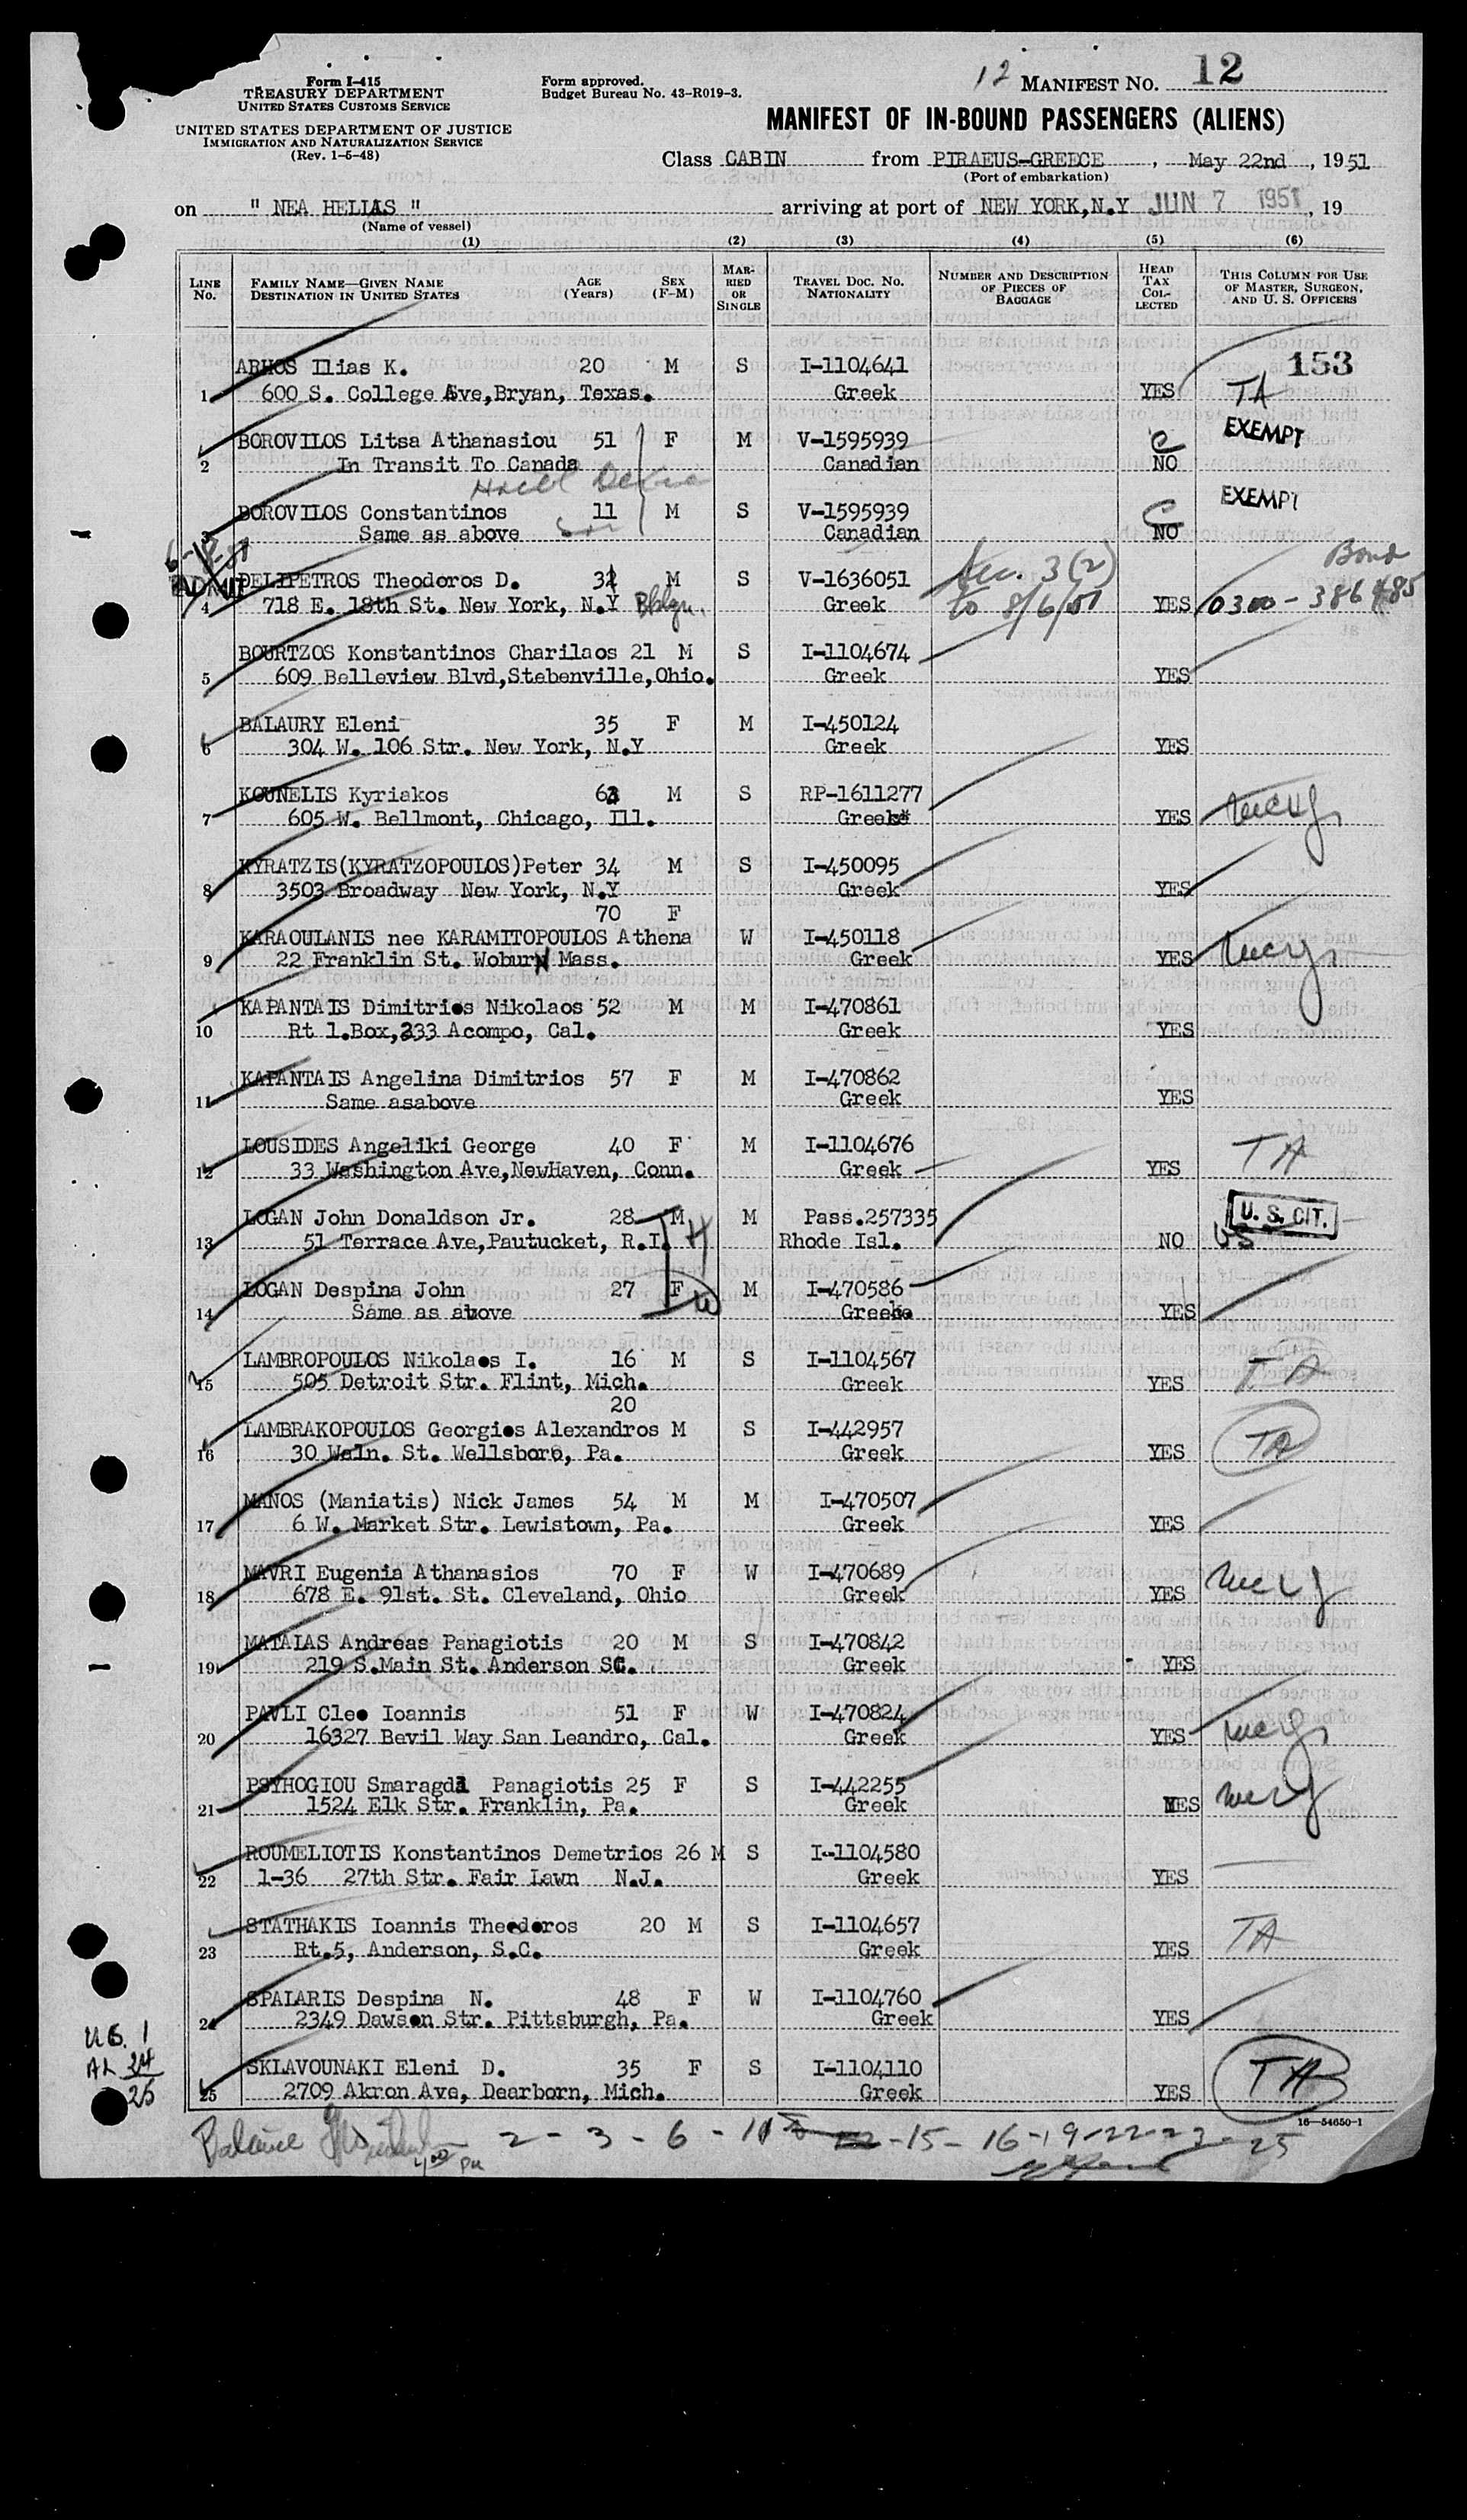 Form I-415
TREASURY DEPARTMENT
UNITED STATES CUSTOMS SERVICE
UNITED STATES DEPARTMENT OF JUSTICE
IMMIGRATION AND NATURALIZATION SERVICE
(Rev. 1-5-48)
Form approved.
Budget Bureau No. 43-R019-3.
12 MANIFEST NO. 12
MANIFEST OF IN-BOUND PASSENGERS (ALIENS)
Class CABIN from PIRAEUS-GREECE, May 22nd, 1951
(Port of embarkation)
on " NEA HELIAS " arriving at port of NEW YORK,N.Y JUN 7 1951, 19
(Name of vessel)
(1) (2) (3) (4) (5) (6)
LINE No. FAMILY NAME—GIVEN NAME DESTINATION IN UNITED STATES AGE (Years) SEX (F-M) MARRIED OR SINGLE TRAVEL DOC. NO. NATIONALITY NUMBER AND DESCRIPTION OF PIECES OF BAGGAGE HEAD TAX COLLECTED THIS COLUMN FOR USE OF MASTER, SURGEON, AND U. S. OFFICERS
ARHOS Ilias K. 20 M S I-1104641 153
1 600 S. College Ave,Bryan, Texas. Greek YES TA
BOROVILOS Litsa Athanasiou 51 F M V-1595939 C EXEMPT
2 In Transit To Canada Canadian NO
Hotel
BOROVILOS Constantinos 11 M S V-1595939 C EXEMPT
3 Same as above Son Canadian NO
6-18-51
ADMIT DELIPETROS Theodoros D. 32 M S V-1636051 Sec. 3(2) Bond
4 718 E. 18th St. New York, N.Y Bklyn. Greek to 8/6/51 YES 0300-386485
BOURTZOS Konstantinos Charilaos 21 M S I-1104674
5 609 Belleview Blvd,Stebenville,Ohio. Greek YES
BALAURY Eleni 35 F M I-450124
6 304 W. 106 Str. New York, N.Y Greek YES
KOUNELIS Kyriakos 63 M S RP-1611277
7 605 W. Bellmont, Chicago, Ill. Greek YES
KYRATZIS(KYRATZOPOULOS)Peter 34 M S I-450095
8 3503 Broadway New York, N.Y Greek YES
70 F
KARAOULANIS nee KARAMITOPOULOS Athena W I-450118
9 22 Franklin St. Woburn Mass. Greek YES
KAPANTAIS Dimitrios Nikolaos 52 M M I-470861
10 Rt 1.Box,233 Acompo, Cal. Greek YES
KAPANTAIS Angelina Dimitrios 57 F M I-470862
11 Same asabove Greek YES
LOUSIDES Angeliki George 40 F M I-1104676 TA
12 33 Washington Ave,NewHaven, Conn. Greek YES
LOGAN John Donaldson Jr. 28 M H M Pass.257335 U. S. CIT.
13 51 Terrace Ave,Pautucket, R.I. Rhode Isl. NO US
LOGAN Despina John 27 F W M I-470586
14 Same as above Greek YES
LAMBROPOULOS Nikolaos I. 16 M S I-1104567 TA
15 505 Detroit Str. Flint, Mich. Greek YES
20
LAMBRAKOPOULOS Georgios Alexandros M S I-442957
16 30 Waln. St. Wellsboro, Pa. Greek YES TA
MANOS (Maniatis) Nick James 54 M M I-470507
17 6 W. Market Str. Lewistown, Pa. Greek YES
MAVRI Eugenia Athanasios 70 F W I-470689
18 678 E. 91st. St. Cleveland, Ohio Greek YES
MATAIAS Andreas Panagiotis 20 M S I-470842
19 219 S.Main St. Anderson SC. Greek YES
PAVLI Cleo Ioannis 51 F W I-470824
20 16327 Bevil Way San Leandro, Cal. Greek YES
PSYHOGIOU Smaragda Panagiotis 25 F S I-442255
21 1524 Elk Str. Franklin, Pa. Greek YES
ROUMELIOTIS Konstantinos Demetrios 26 M S I-1104580
22 1-36 27th Str. Fair Lawn N.J. Greek YES
STATHAKIS Ioannis Theodoros 20 M S I-1104657 TA
23 Rt.5, Anderson, S.C. Greek YES
SPALARIS Despina N. 48 F W I-1104760
24 2349 Dawson Str. Pittsburgh, Pa. Greek YES
US. 1
AL 24
25
SKLAVOUNAKI Eleni D. 35 F S I-1104110 TA
25 2709 Akron Ave, Dearborn, Mich. Greek YES
16—54650-1
Balance 2-3-6-10 12-15-16-19-22-23-25